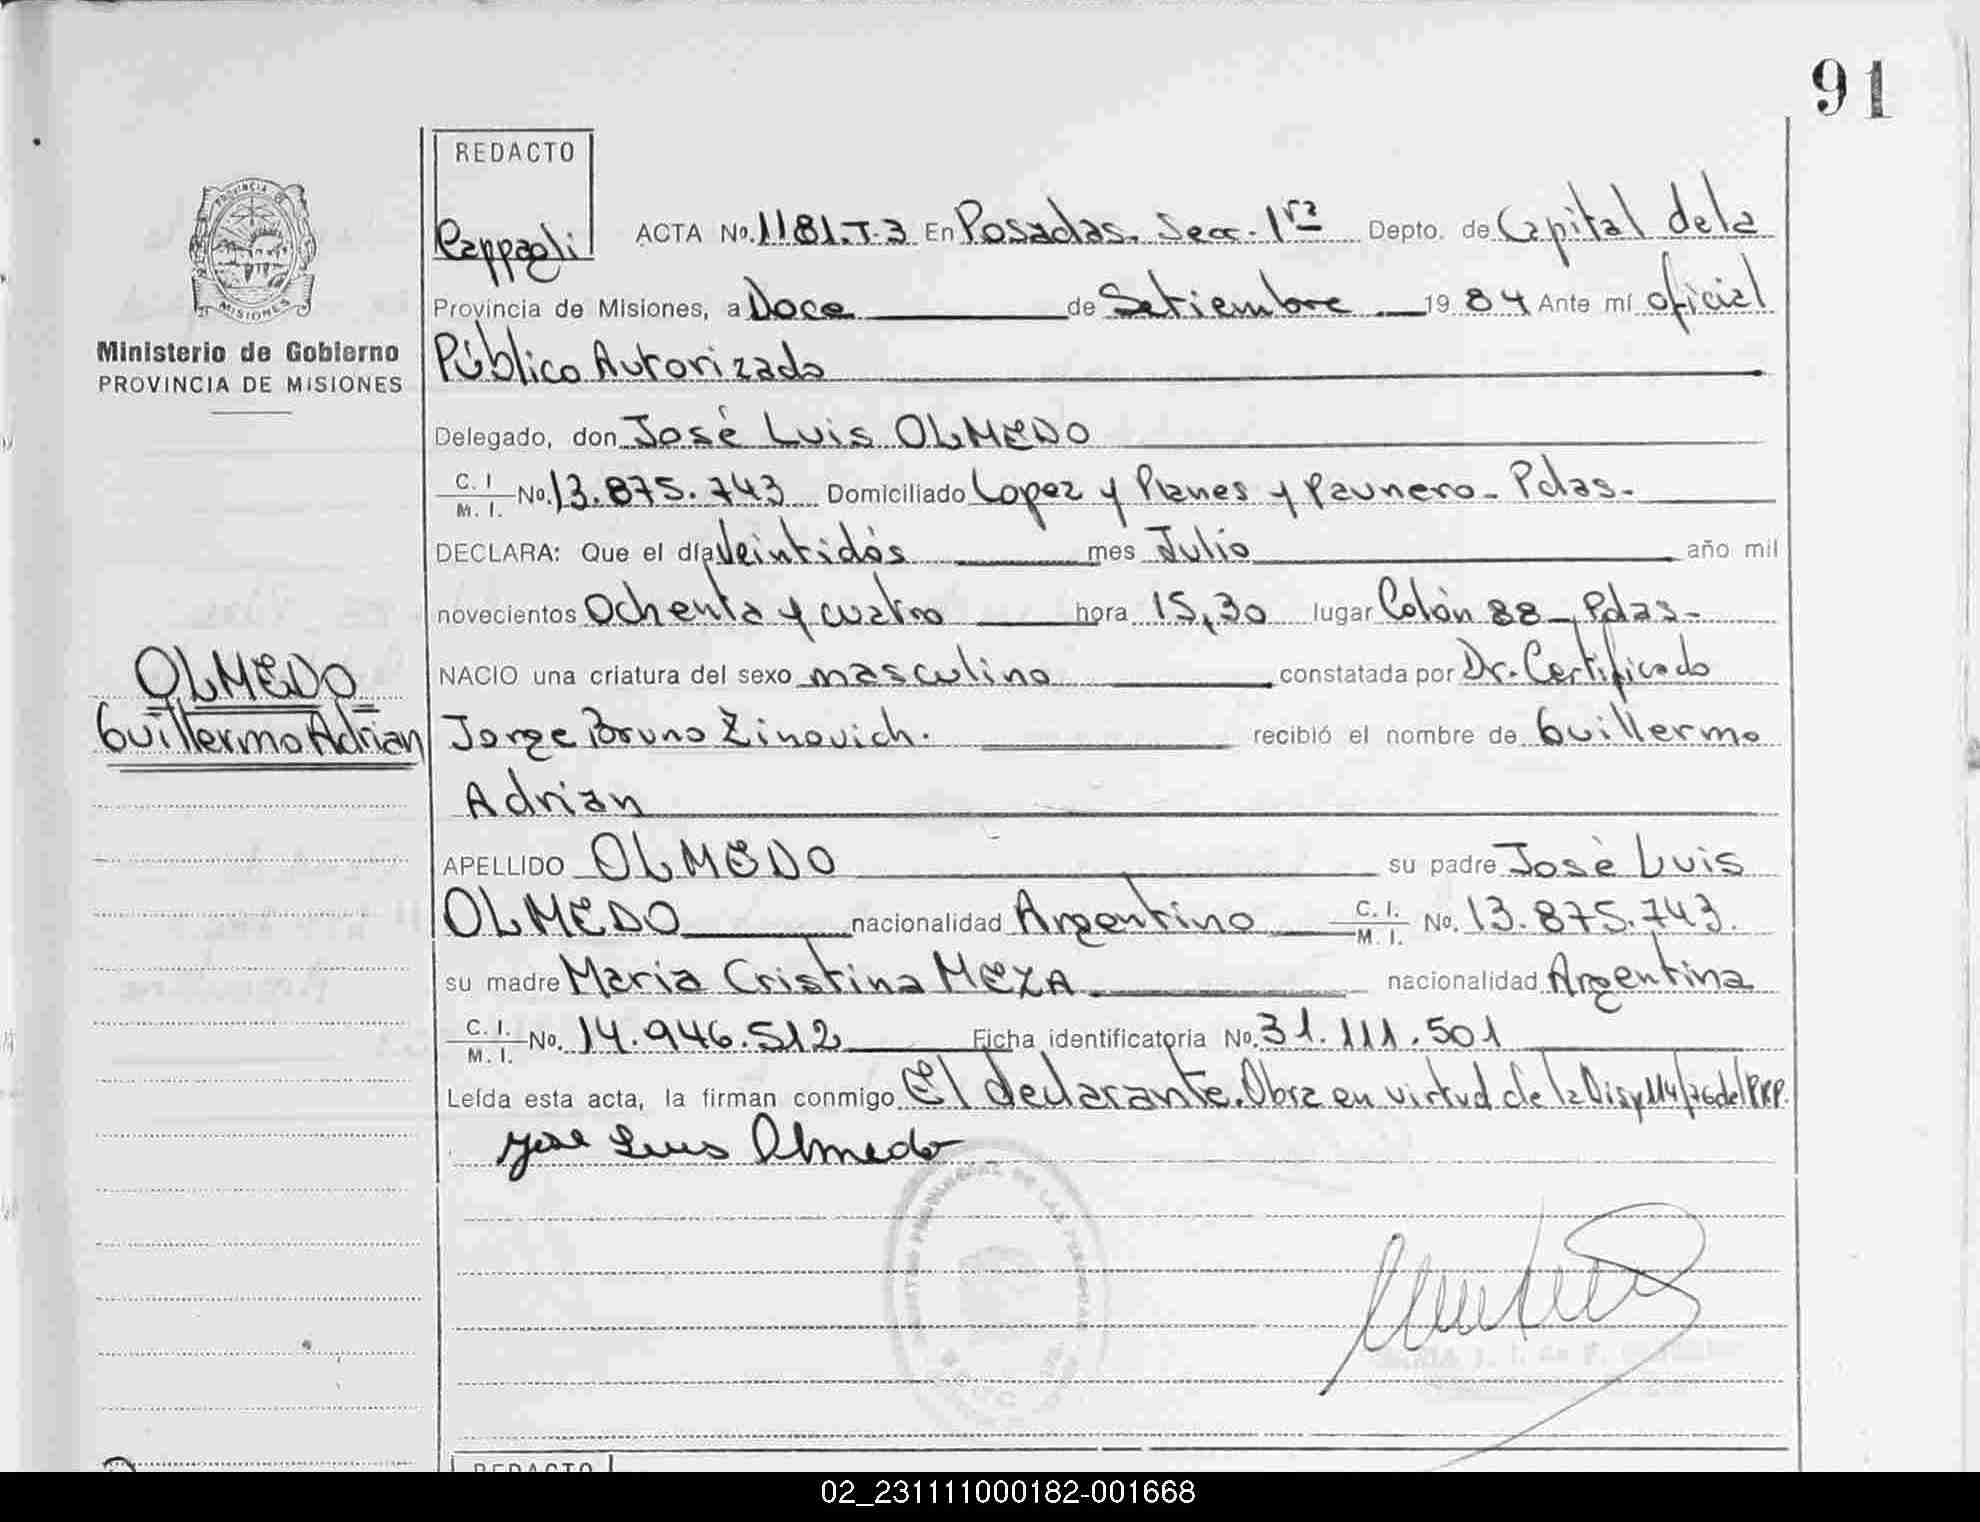 91
REDACTO
Rappagli
ACTA No. 1181.T.3 En Posadas. Secc. 1ra Depto. de Capital de la
Provincia de Misiones, a Doce de Setiembre 1984 Ante mí oficial
Público Autorizado
Delegado, don José Luis OLMEDO
C. I. M. I. No. 13.875.743 Domiciliado Lopez y Planes y Paunero - Pdas.
DECLARA: Que el día Veintidós mes Julio año mil
novecientos Ochenta y cuatro hora 15,30 lugar Colón 88 - Pdas -
NACIO una criatura del sexo masculino constatada por Dr. Certificado
Jorge Bruno Zinovich. recibió el nombre de Guillermo
Adrian
APELLIDO OLMEDO su padre José Luis
OLMEDO nacionalidad Argentino C. I. M. I. No. 13.875.743.
su madre Maria Cristina MEZA nacionalidad Argentina
C. I. M. I. No. 14.946.512 Ficha identificatoria No. 31.111.501
Leída esta acta, la firman conmigo El declarante. Obra en virtud de la Disp 114/76 del RPP.
Jose Luis Olmedo
PROVINCIA DE
MISIONES
Ministerio de Gobierno
PROVINCIA DE MISIONES
OLMEDO
Guillermo Adrian
REDACTO
02_231111000182-001668